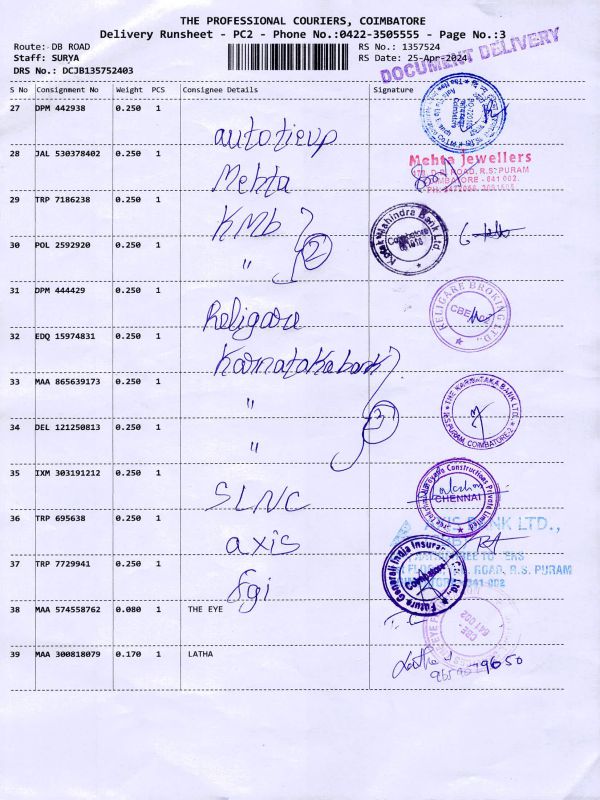 THE PROFESSIONAL COURIERS, COIMBATORE
Delivery Runsheet - PC2 - Phone No.:0422-3505555 - Page No.:3
Route: DB ROAD
RS No.: 1357524
Staff: SURYA
RS Date: 25-Apr-2024
DRS No.: DCJB135752403
DOCUMENT DELIVERY
S No Consignment No Weight PCS Consignee Details Signature
27 DPM 442938 0.250 1
autotieup
28 JAL 530378402 0.250 1
Mehta
Mehta Jewellers
ROAD, R.S. PURAM
COIMBATORE - 641 002.
29 TRP 7186238 0.250 1
KMb
Kotak Mahindra Bank Ltd.
Coimbatore
30 POL 2592920 0.250 1
" 2
31 DPM 444429 0.250 1
Religare
RELIGARE BROKING LTD.,
32 EDQ 15974831 0.250 1
Karnataka bank
33 MAA 865639173 0.250 1
"
THE KARNATAKA BANK LTD.
R.S. PURAM, COIMBATORE-2
34 DEL 121250813 0.250 1
" 3
35 IXM 303191212 0.250 1
SLNC
Constructions Private Limited
CHENNAI
36 TRP 695638 0.250 1
axis
AXIS BANK LTD.,
ROAD, R.S. PURAM
641 002
37 TRP 7729941 0.250 1
fgi
Future Generali India Insurance Co. Ltd.
Coimbatore
38 MAA 574558762 0.080 1 THE EYE
CBE -
641 002
39 MAA 300818079 0.170 1 LATHA
Latha